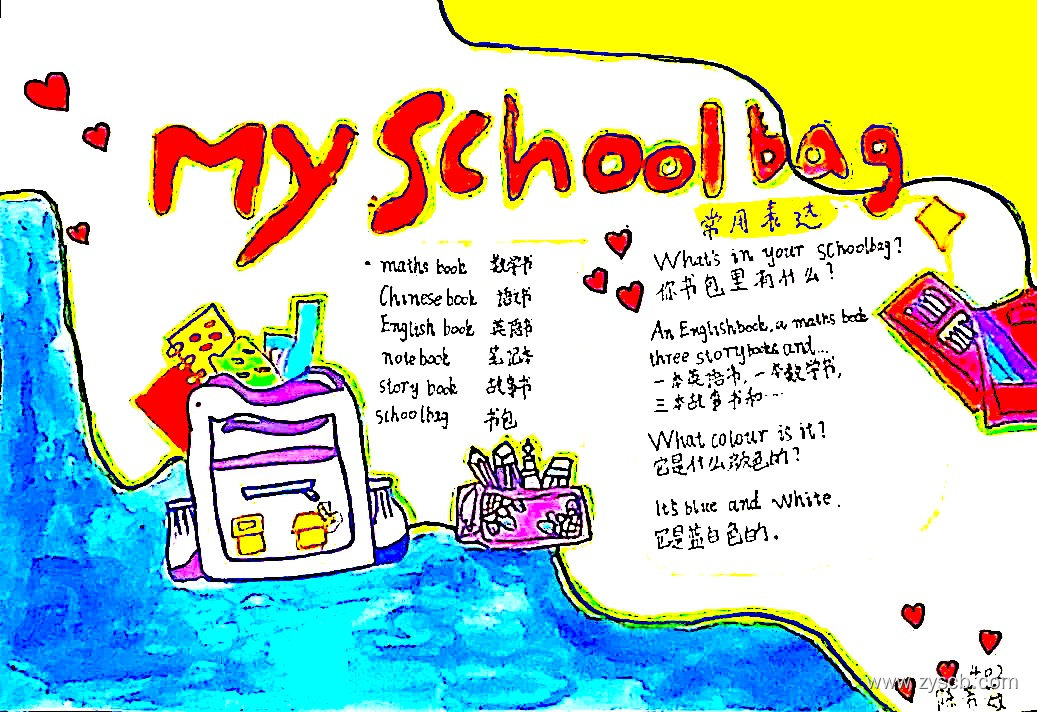 My schoolbag
常用表达
maths book 数学书
Chinese book 语文书
English book 英语书
notebook 笔记本
story book 故事书
schoolbag 书包
What's in your schoolbag?
你书包里有什么?
An Englishbook, a maths book
three storybooks and...
一本英语书,一本数学书,
三本故事书和…
What colour is it?
它是什么颜色的?
It's blue and white.
它是蓝白色的.
402
www.zyscb.com